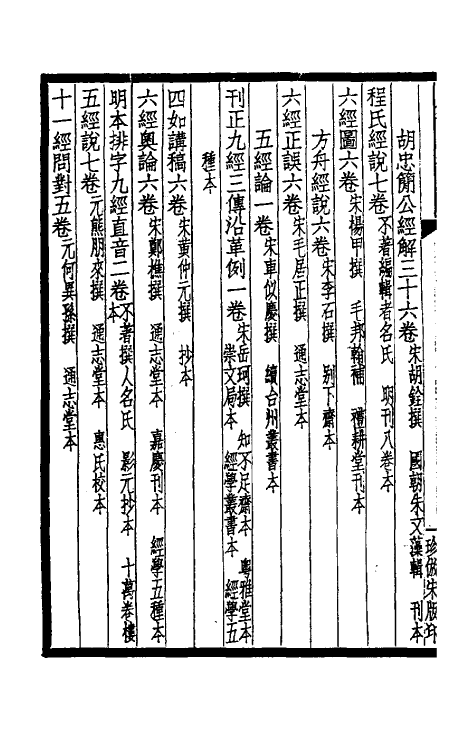 珍倣宋版印
胡忠簡公經解三十六卷 宋胡銓撰 國朝朱文藻輯 刊本
程氏經說七卷 不著編輯者名氏 明刊八卷本
六經圖六卷 宋楊甲撰 毛邦翰補 禮耕堂刊本
方舟經說六卷 宋李石撰 別下齋本
六經正誤六卷 宋毛居正撰 通志堂本
五經論一卷 宋車似慶撰 續台州叢書本
刊正九經三傳沿革例一卷 宋岳珂撰 知不足齋本 粵雅堂本 崇文局本 經學叢書本 經學五
種本
四如講稿六卷 宋黃仲元撰 抄本
六經奧論六卷 宋鄭樵撰 通志堂本 嘉慶刊本 經學五種本
明本排字九經直音二卷 不著撰人名氏 影元抄本 十萬卷樓本
五經說七卷 元熊朋來撰 通志堂本 惠氏校本
十一經問對五卷 元何異孫撰 通志堂本